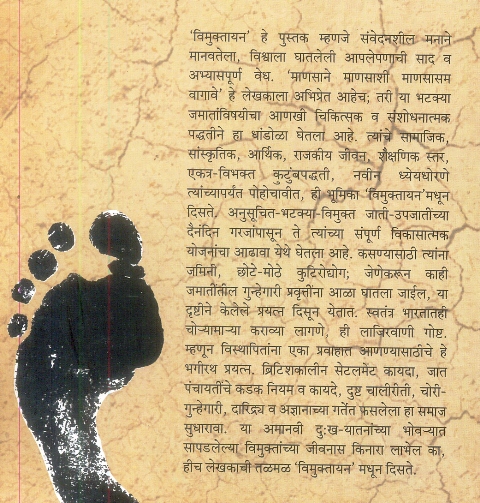 'विमुक्तायन' हे पुस्तक म्हणजे संवेदनशील मनाने
मानवतेला, विश्वाला घातलेली आपलेपणाची साद व
अभ्यासपूर्ण वेध. 'माणसाने माणसाशी माणसासम
वागावे' हे लेखकाला अभिप्रेत आहेच; तरी या भटक्या
जमातींविषयीचा आणखी चिकित्सक व संशोधनात्मक
पद्धतीने हा धांडोळा घेतला आहे. त्यांचे सामाजिक,
सांस्कृतिक, आर्थिक, राजकीय जीवन, शैक्षणिक स्तर,
एकत्र-विभक्त कुटुंबपद्धती, नवीन ध्येयधोरणे
त्यांच्यापर्यंत पोहोचावीत, ही भूमिका 'विमुक्तायन'मधून
दिसते. अनुसूचित-भटक्या-विमुक्त जाती-उपजातींच्या
दैनंदिन गरजांपासून ते त्यांच्या संपूर्ण विकासात्मक
योजनांचा आढावा येथे घेतला आहे. कसण्यासाठी त्यांना
जमिनी, छोटे-मोठे कुटिरोद्योग; जेणेकरून काही
जमातींतील गुन्हेगारी प्रवृत्तींना आळा घातला जाईल, या
दृष्टीने केलेले प्रयत्न दिसून येतात. स्वतंत्र भारतातही
चोऱ्यामाऱ्या कराव्या लागणे, ही लाजिरवाणी गोष्ट.
म्हणून विस्थापितांना एका प्रवाहात आणण्यासाठीचे हे
भगीरथ प्रयत्न, ब्रिटिशकालीन सेटलमेंट कायदा, जात
पंचायतींचे कडक नियम व कायदे, दुष्ट चालीरीती, चोरी-
गुन्हेगारी, दारिद्र्य व अज्ञानाच्या गर्तेत फसलेला हा समाज
सुधारावा. या अमानवी दु:ख-यातनांच्या भोवऱ्यात
सापडलेल्या विमुक्तांच्या जीवनास किनारा लाभेल का,
हीच लेखकाची तळमळ 'विमुक्तायन' मधून दिसते.